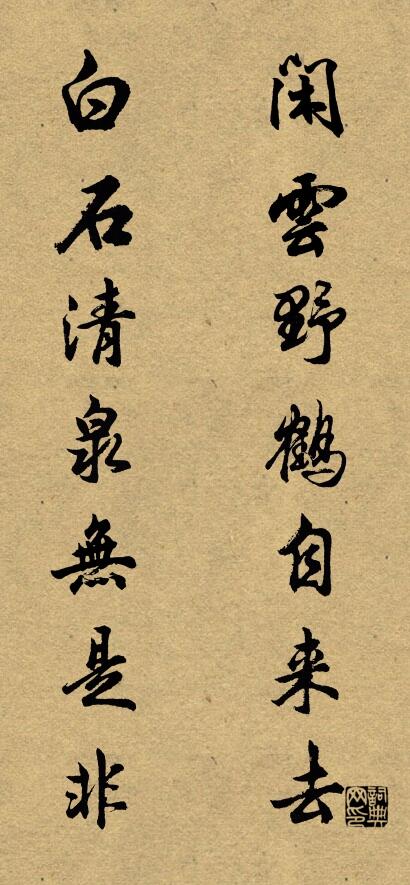 閑雲野鶴自来去
白石清泉無是非
詞典網印